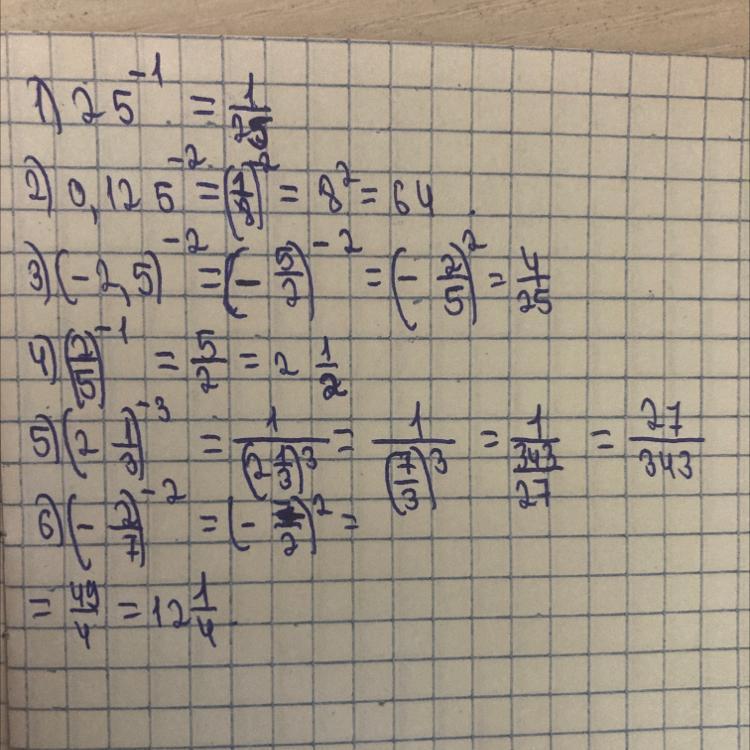 1) 25^-1 = 1/25
2) 0,125^-2 = (1/8)^-2 = 8^2 = 64
3) (-2,5)^-2 = (-5/2)^-2 = (-2/5)^2 = 4/25
4) (2/5)^-1 = 5/2 = 2 1/2
5) (2 1/3)^-3 = 1/(2 1/3)^3 = 1/(7/3)^3 = 1/(343/27) = 27/343
6) (-2/7)^-2 = (-7/2)^2 =
= 49/4 = 12 1/4